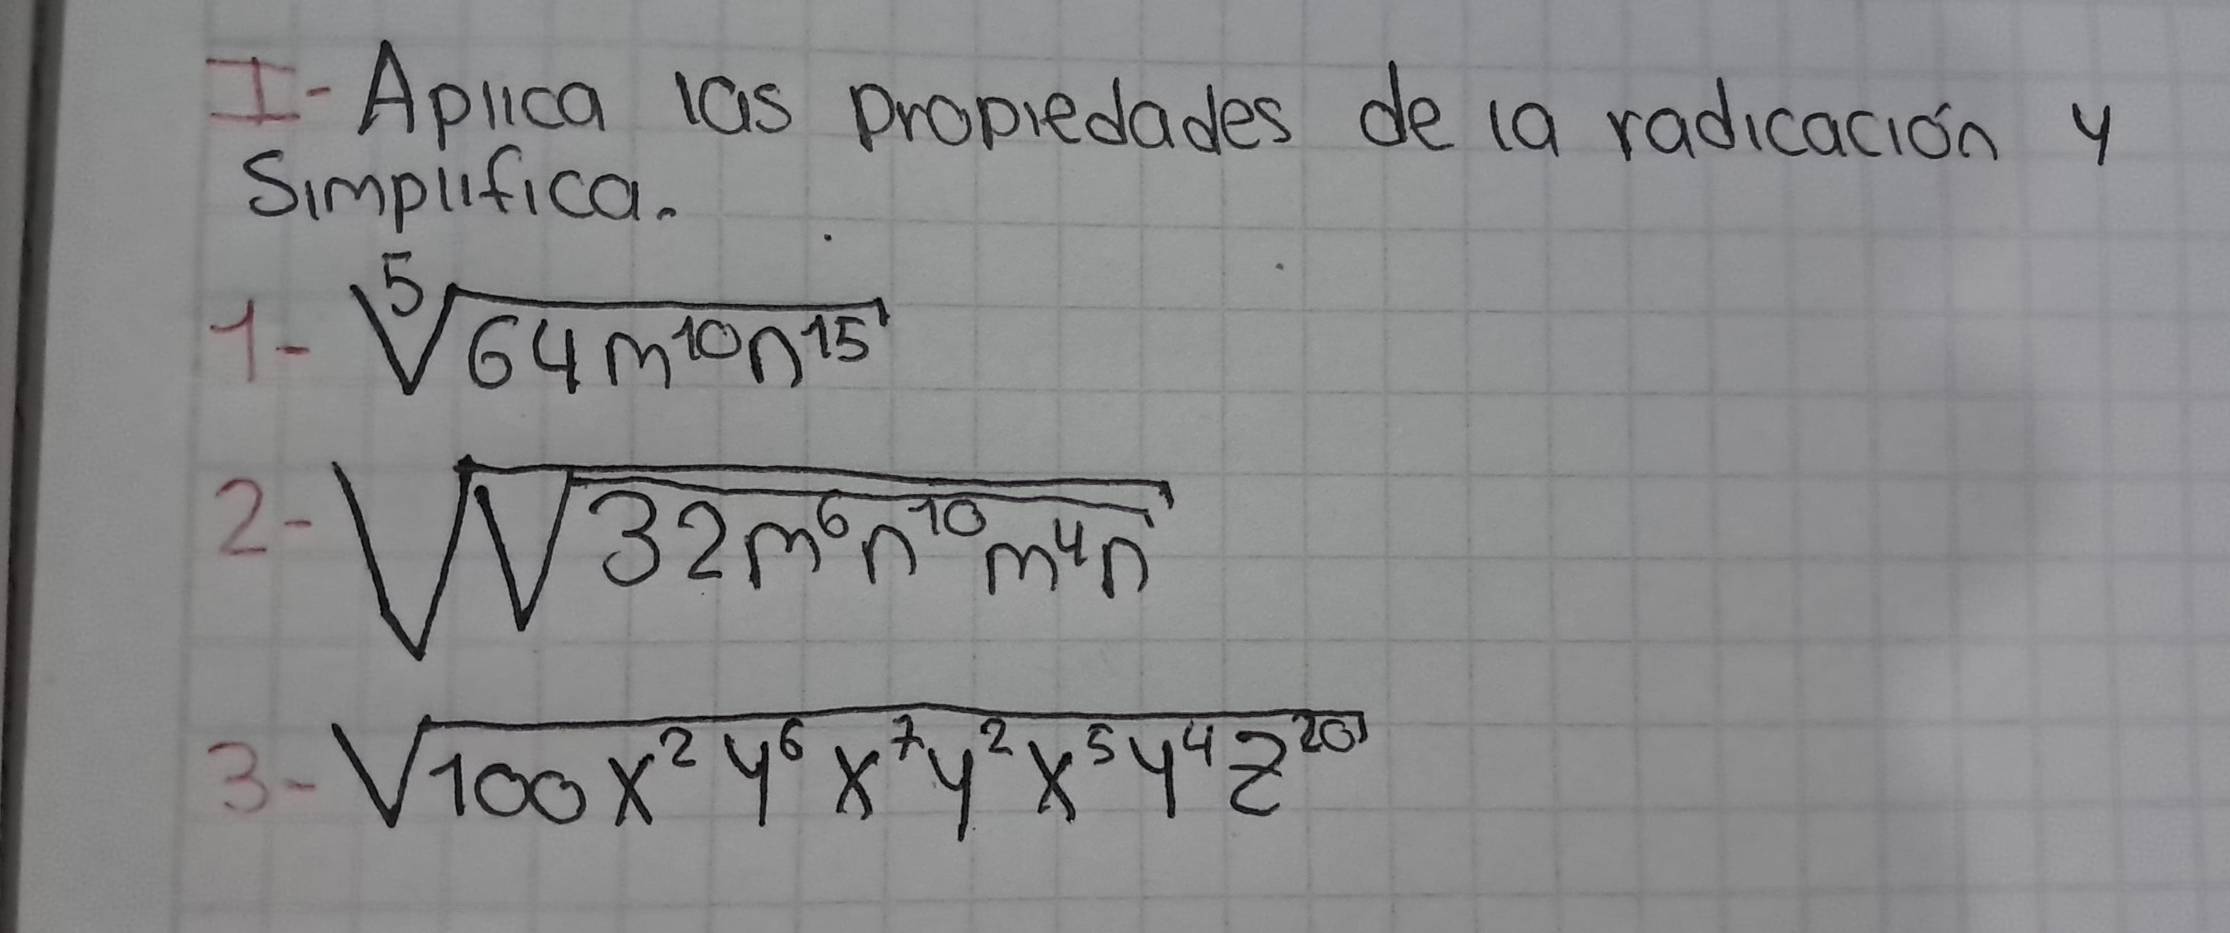 I- Aplica las propiedades de la radicación y
Simplifica.
1- ⁵√64m¹⁰n¹⁵
2- √√32m⁶n¹⁰m⁴n
3- √100x²y⁶x⁷y²x⁵y⁴z²⁰